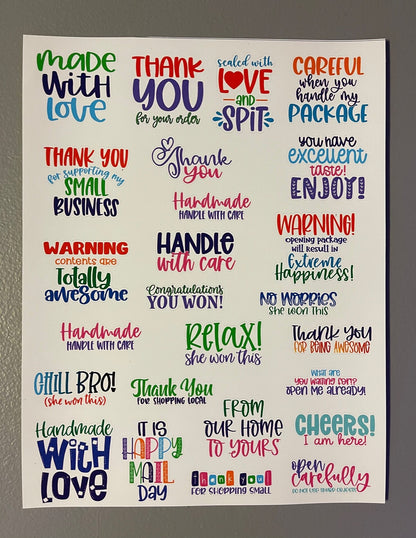 made
WITH
love
THANK
YOU
for your order
sealed with
LOVE
and
SPIT
CAREFUL
when you
handle my
PACKAGE
THANK YOU
for supporting my
SMALL
BUSINESS
Thank
you
Handmade
HANDLE WITH CARE
you have
excellent
taste!
ENJOY!
WARNING
contents are
Totally
awesome
HANDLE
with care
Congratulations
YOU WON!
WARNING!
opening package
will result in
Extreme
Happiness!
NO WORRIES
She Won This
Handmade
HANDLE WITH CARE
RELAX!
she won this
Thank you
FOR BEING AWESOME
CHILL BRO!
(she won this)
Thank You
FOR SHOPPING LOCAL
FROM
OUR HOME
TO YOURS
What are
you waiting for?
open me already!
Handmade
WITH
LOVE
IT IS
HAPPY
MAIL
DAY
Thank you!
FOR SHOPPING SMALL
CHEERS!
I am here!
open
carefully
DO NOT USE SHARP OBJECTS